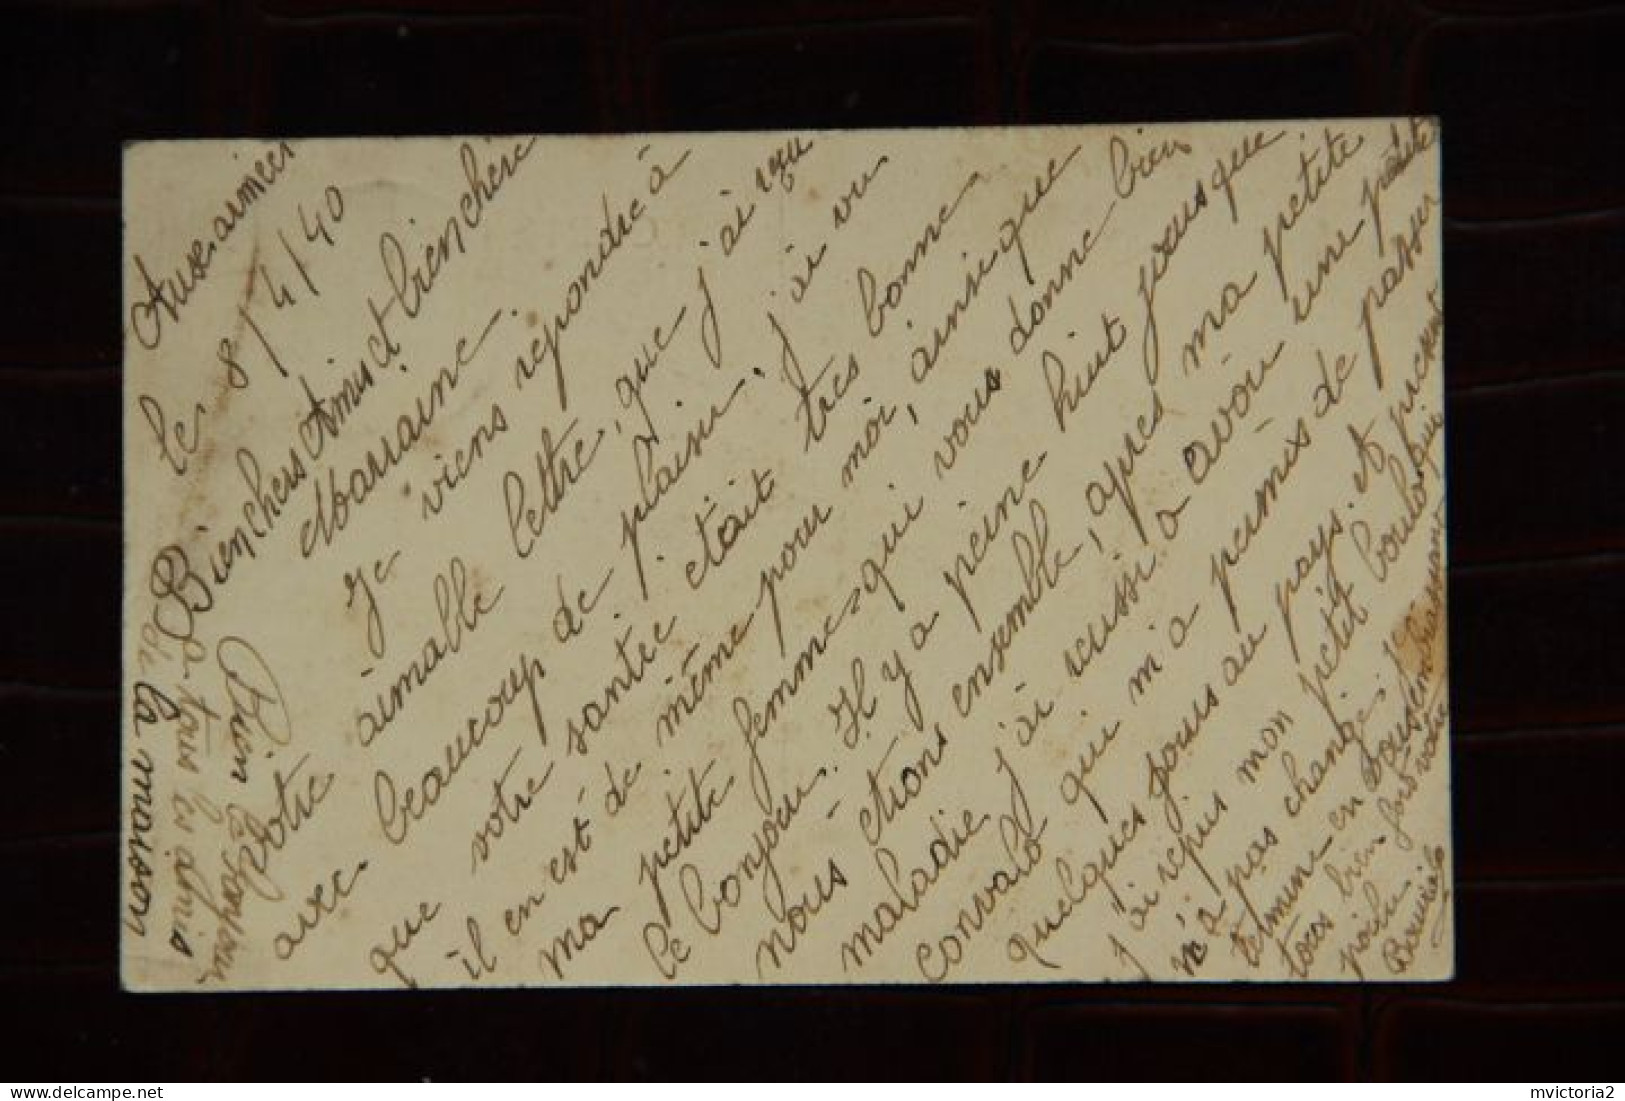 Aux armées
le 8/4/40
Bien chers Amis et bien chère
Marraine.
Je viens répondre à
votre aimable lettre, que j'ai reçu
avec beaucoup de plaisir, j'ai vu
que votre santée était très bonne
il en est de même pour moi, ainsi que
ma petite femme qui vous donne bien
le bonjour. Il y a à peine huit jours que
nous étions ensemble, après ma petite
maladie j'ai reussi a avoir une petite
convalo qui m'a permis de passer
quelques jours au pays. et
j'ai repris mon petit boulo qui
n'a pas changé.
termine en vous embrassant
tous bien fort votre
poilu
Bien le bonjour
a tous les amis
de la maison
mvictoria2